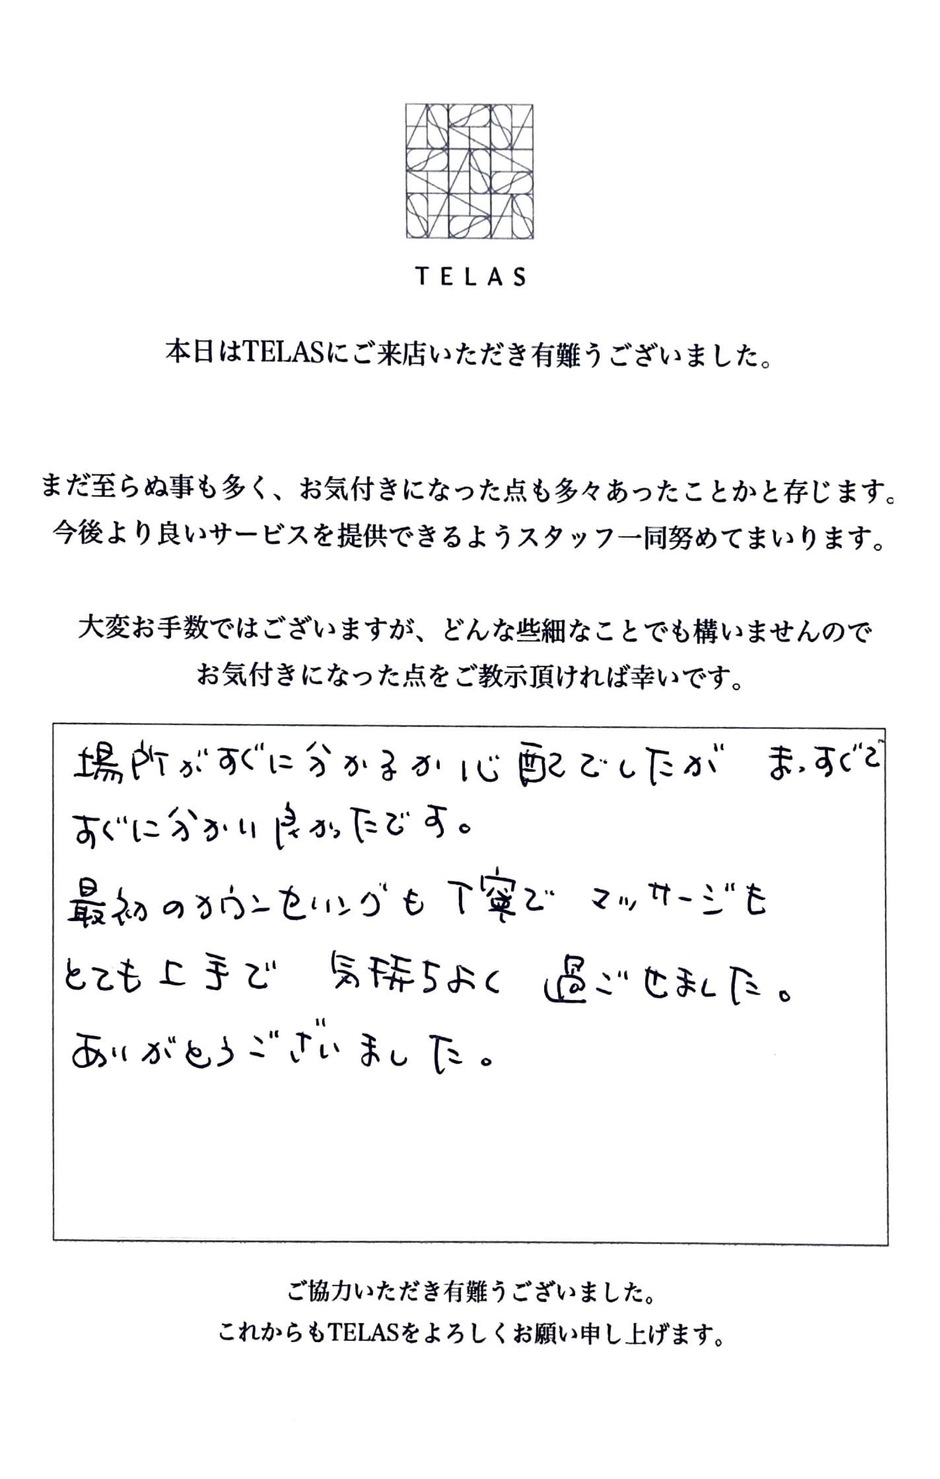 TELAS
本日はTELASにご来店いただき有難うございました。
まだ至らぬ事も多く、お気付きになった点も多々あったことかと存じます。
今後より良いサービスを提供できるようスタッフ一同努めてまいります。
大変お手数ではございますが、どんな些細なことでも構いませんので
お気付きになった点をご教示頂ければ幸いです。
場所がすぐに分かるか心配でしたが まっすぐで
すぐに分かり良かったです。
最初のカウンセリングも丁寧で マッサージも
とても上手で 気持ちよく 過ごせました。
ありがとうございました。
ご協力いただき有難うございました。
これからもTELASをよろしくお願い申し上げます。